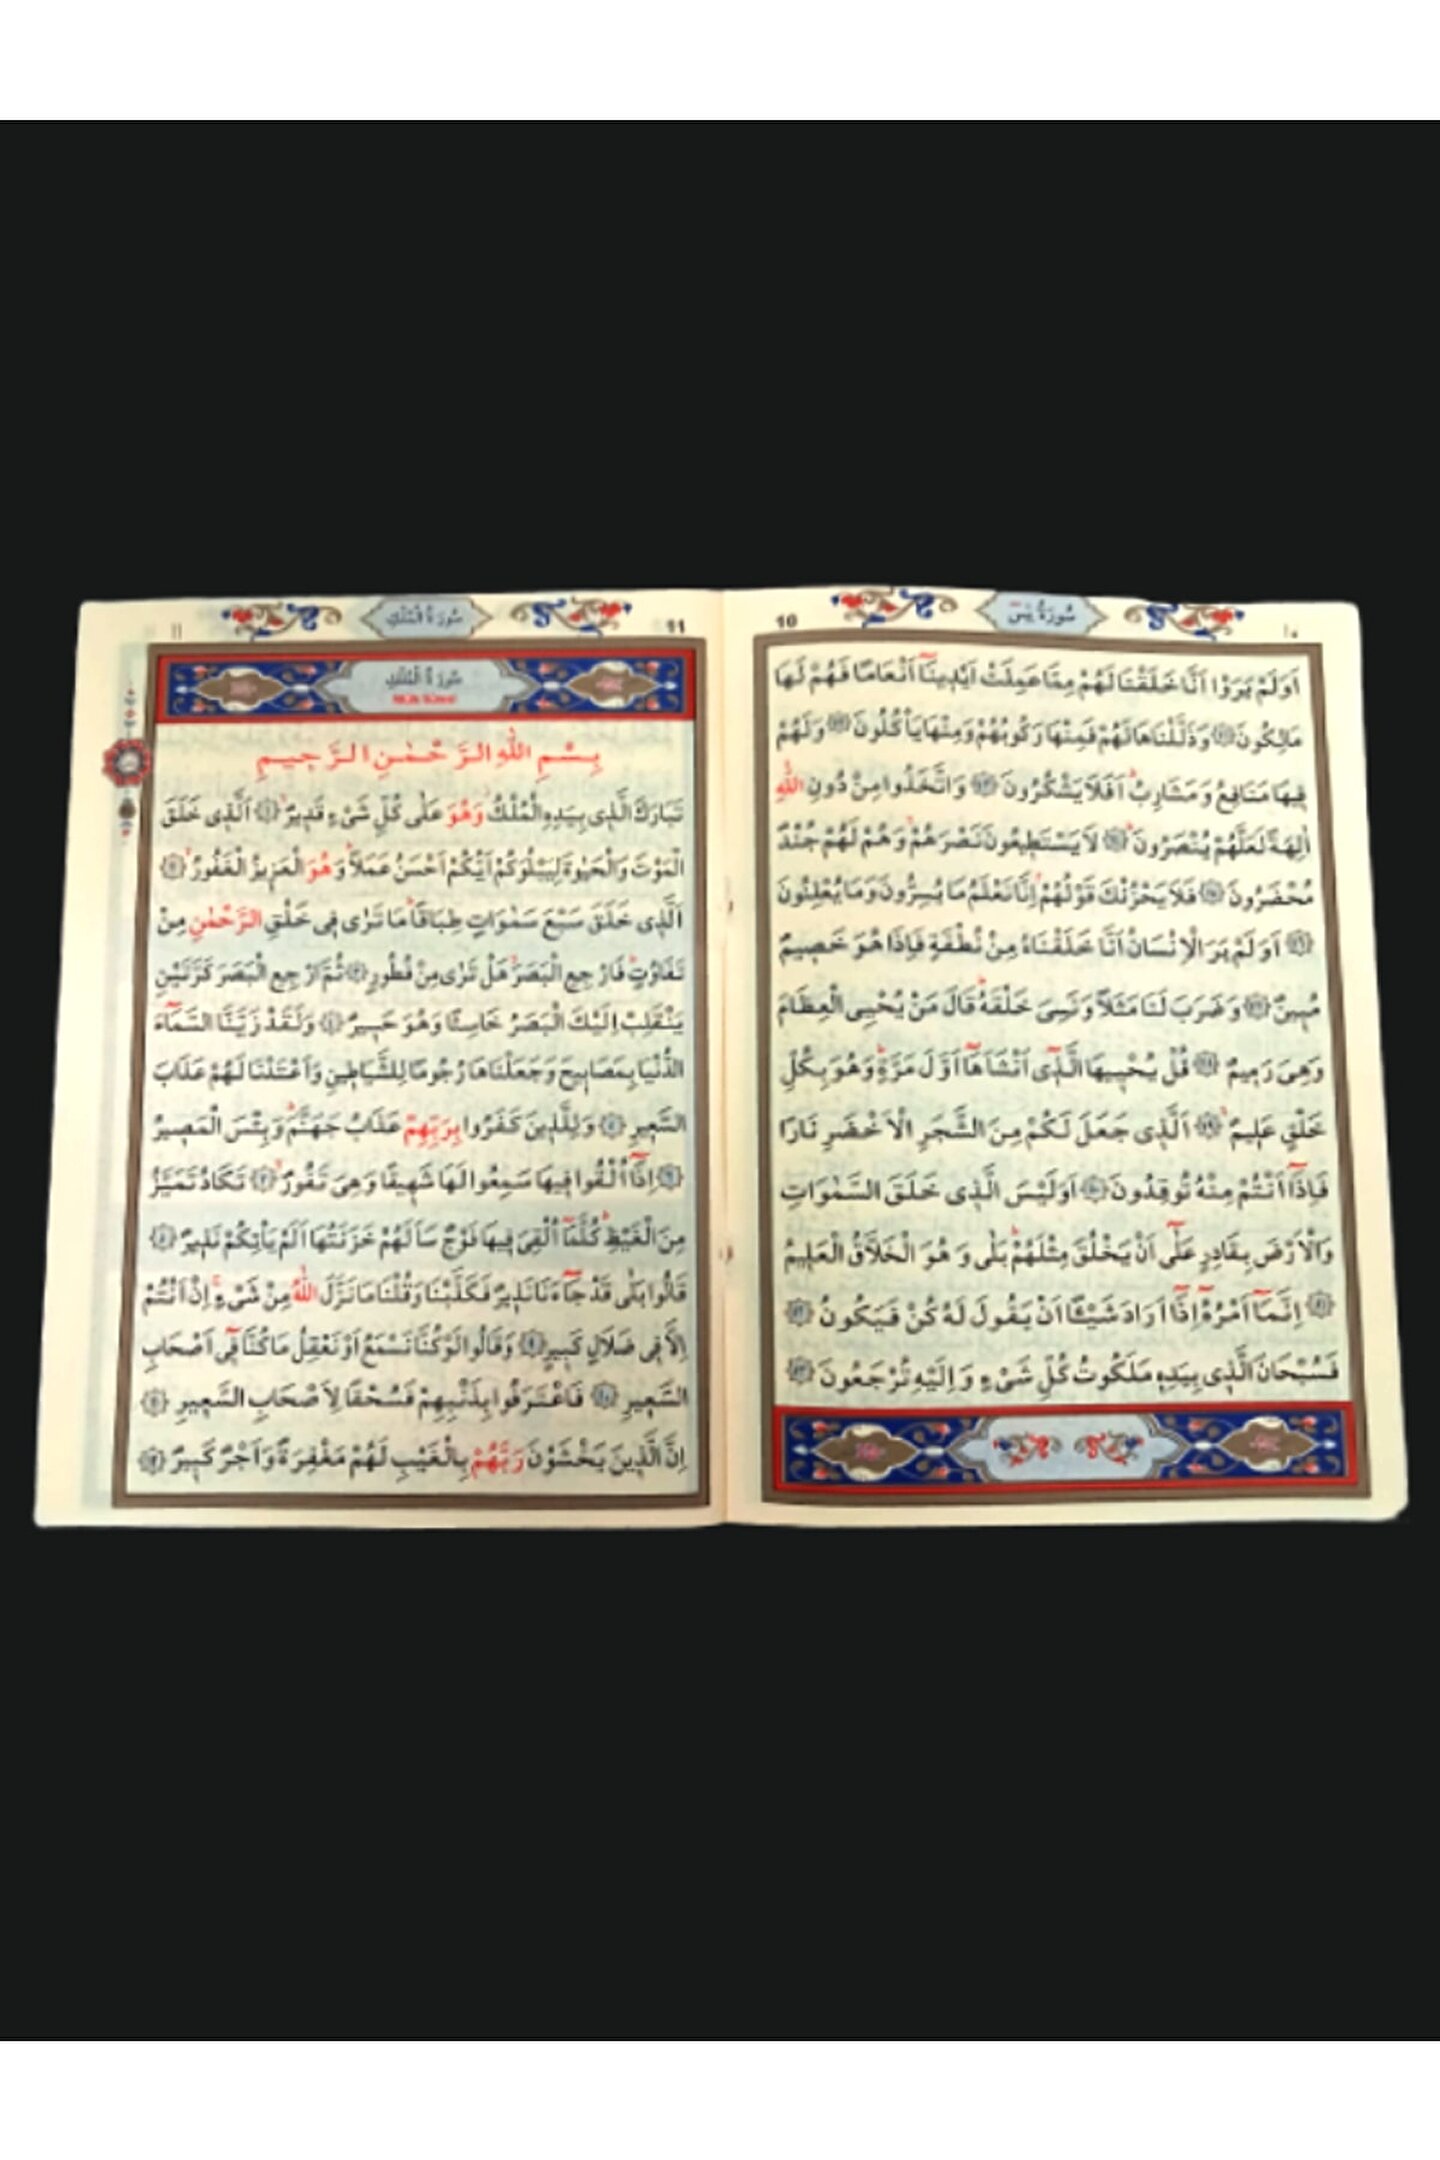 سُورَةُ يٰسٓ
10
١٠
اَوَلَمْ يَرَوْا اَنَّا خَلَقْنَا لَهُمْ مِمَّا عَمِلَتْ اَيْدٖينَٓا اَنْعَامًا فَهُمْ لَهَا
مَالِكُونَ ﴿٧١﴾ وَذَلَّلْنَاهَا لَهُمْ فَمِنْهَا رَكُوبُهُمْ وَمِنْهَا يَأْكُلُونَ ﴿٧٢﴾ وَلَهُمْ
فٖيهَا مَنَافِعُ وَمَشَارِبُۜ اَفَلَا يَشْكُرُونَ ﴿٧٣﴾ وَاتَّخَذُوا مِنْ دُونِ اللّٰهِ
اٰلِهَةً لَعَلَّهُمْ يُنْصَرُونَۜ ﴿٧٤﴾ لَا يَسْتَطٖيعُونَ نَصْرَهُمْۙ وَهُمْ لَهُمْ جُنْدٌ
مُحْضَرُونَ ﴿٧٥﴾ فَلَا يَحْزُنْكَ قَوْلُهُمْۢ اِنَّا نَعْلَمُ مَا يُسِرُّونَ وَمَا يُعْلِنُونَ
﴿٧٦﴾ اَوَلَمْ يَرَ الْاِنْسَانُ اَنَّا خَلَقْنَاهُ مِنْ نُطْفَةٍ فَاِذَا هُوَ خَصٖيمٌ
مُبٖينٌ ﴿٧٧﴾ وَضَرَبَ لَنَا مَثَلًا وَنَسِيَ خَلْقَهُۜ قَالَ مَنْ يُحْيِي الْعِظَامَ
وَهِيَ رَمٖيمٌ ﴿٧٨﴾ قُلْ يُحْيٖيهَا الَّذٖٓي اَنْشَاَهَٓا اَوَّلَ مَرَّةٍۜ وَهُوَ بِكُلِّ
خَلْقٍ عَلٖيمٌۙ ﴿٧٩﴾ اَلَّذٖي جَعَلَ لَكُمْ مِنَ الشَّجَرِ الْاَخْضَرِ نَارًا
فَاِذَٓا اَنْتُمْ مِنْهُ تُوقِدُونَ ﴿٨٠﴾ اَوَلَيْسَ الَّذٖي خَلَقَ السَّمٰوَاتِ
وَالْاَرْضَ بِقَادِرٍ عَلٰٓى اَنْ يَخْلُقَ مِثْلَهُمْۜ بَلٰى وَهُوَ الْخَلَّاقُ الْعَلٖيمُ
﴿٨١﴾ اِنَّمَٓا اَمْرُهُٓ اِذَٓا اَرَادَ شَيْئًا اَنْ يَقُولَ لَهُ كُنْ فَيَكُونُ ﴿٨٢﴾
فَسُبْحَانَ الَّذٖي بِيَدِهٖ مَلَكُوتُ كُلِّ شَيْءٍ وَاِلَيْهِ تُرْجَعُونَ ﴿٨٣﴾
سُورَةُ الْمُلْكِ
11
١١
سُورَةُ الْمُلْكِ
بِسْمِ اللّٰهِ الرَّحْمٰنِ الرَّحٖيمِ
تَبَارَكَ الَّذٖي بِيَدِهِ الْمُلْكُۘ وَهُوَ عَلٰى كُلِّ شَيْءٍ قَدٖيرٌۙ ﴿١﴾ اَلَّذٖي خَلَقَ
الْمَوْتَ وَالْحَيٰوةَ لِيَبْلُوَكُمْ اَيُّكُمْ اَحْسَنُ عَمَلًاۜ وَهُوَ الْعَزٖيزُ الْغَفُورُۙ ﴿٢﴾
اَلَّذٖي خَلَقَ سَبْعَ سَمٰوَاتٍ طِبَاقًاۜ مَا تَرٰى فٖي خَلْقِ الرَّحْمٰنِ مِنْ
تَفَاوُتٍۜ فَارْجِعِ الْبَصَرَۙ هَلْ تَرٰى مِنْ فُطُورٍ ﴿٣﴾ ثُمَّ ارْجِعِ الْبَصَرَ كَرَّتَيْنِ
يَنْقَلِبْ اِلَيْكَ الْبَصَرُ خَاسِئًا وَهُوَ حَسٖيرٌ ﴿٤﴾ وَلَقَدْ زَيَّنَّا السَّمَٓاءَ
الدُّنْيَا بِمَصَابٖيحَ وَجَعَلْنَاهَا رُجُومًا لِلشَّيَاطٖينِ وَاَعْتَدْنَا لَهُمْ عَذَابَ
السَّعٖيرِ ﴿٥﴾ وَلِلَّذٖينَ كَفَرُوا بِرَبِّهِمْ عَذَابُ جَهَنَّمَۜ وَبِئْسَ الْمَصٖيرُ
﴿٦﴾ اِذَٓا اُلْقُوا فٖيهَا سَمِعُوا لَهَا شَهٖيقًا وَهِيَ تَفُورُۙ ﴿٧﴾ تَكَادُ تَمَيَّزُ
مِنَ الْغَيْظِۜ كُلَّمَٓا اُلْقِيَ فٖيهَا فَوْجٌ سَاَلَهُمْ خَزَنَتُهَٓا اَلَمْ يَأْتِكُمْ نَذٖيرٌ ﴿٨﴾
قَالُوا بَلٰى قَدْ جَٓاءَنَا نَذٖيرٌ فَكَذَّبْنَا وَقُلْنَا مَا نَزَّلَ اللّٰهُ مِنْ شَيْءٍۚ اِنْ اَنْتُمْ
اِلَّا فٖي ضَلَالٍ كَبٖيرٍ ﴿٩﴾ وَقَالُوا لَوْ كُنَّا نَسْمَعُ اَوْ نَعْقِلُ مَا كُنَّا فٖٓي اَصْحَابِ
السَّعٖيرِ ﴿١٠﴾ فَاعْتَرَفُوا بِذَنْبِهِمْ فَسُحْقًا لِاَصْحَابِ السَّعٖيرِ ﴿١١﴾
اِنَّ الَّذٖينَ يَخْشَوْنَ رَبَّهُمْ بِالْغَيْبِ لَهُمْ مَغْفِرَةٌ وَاَجْرٌ كَبٖيرٌ ﴿١٢﴾